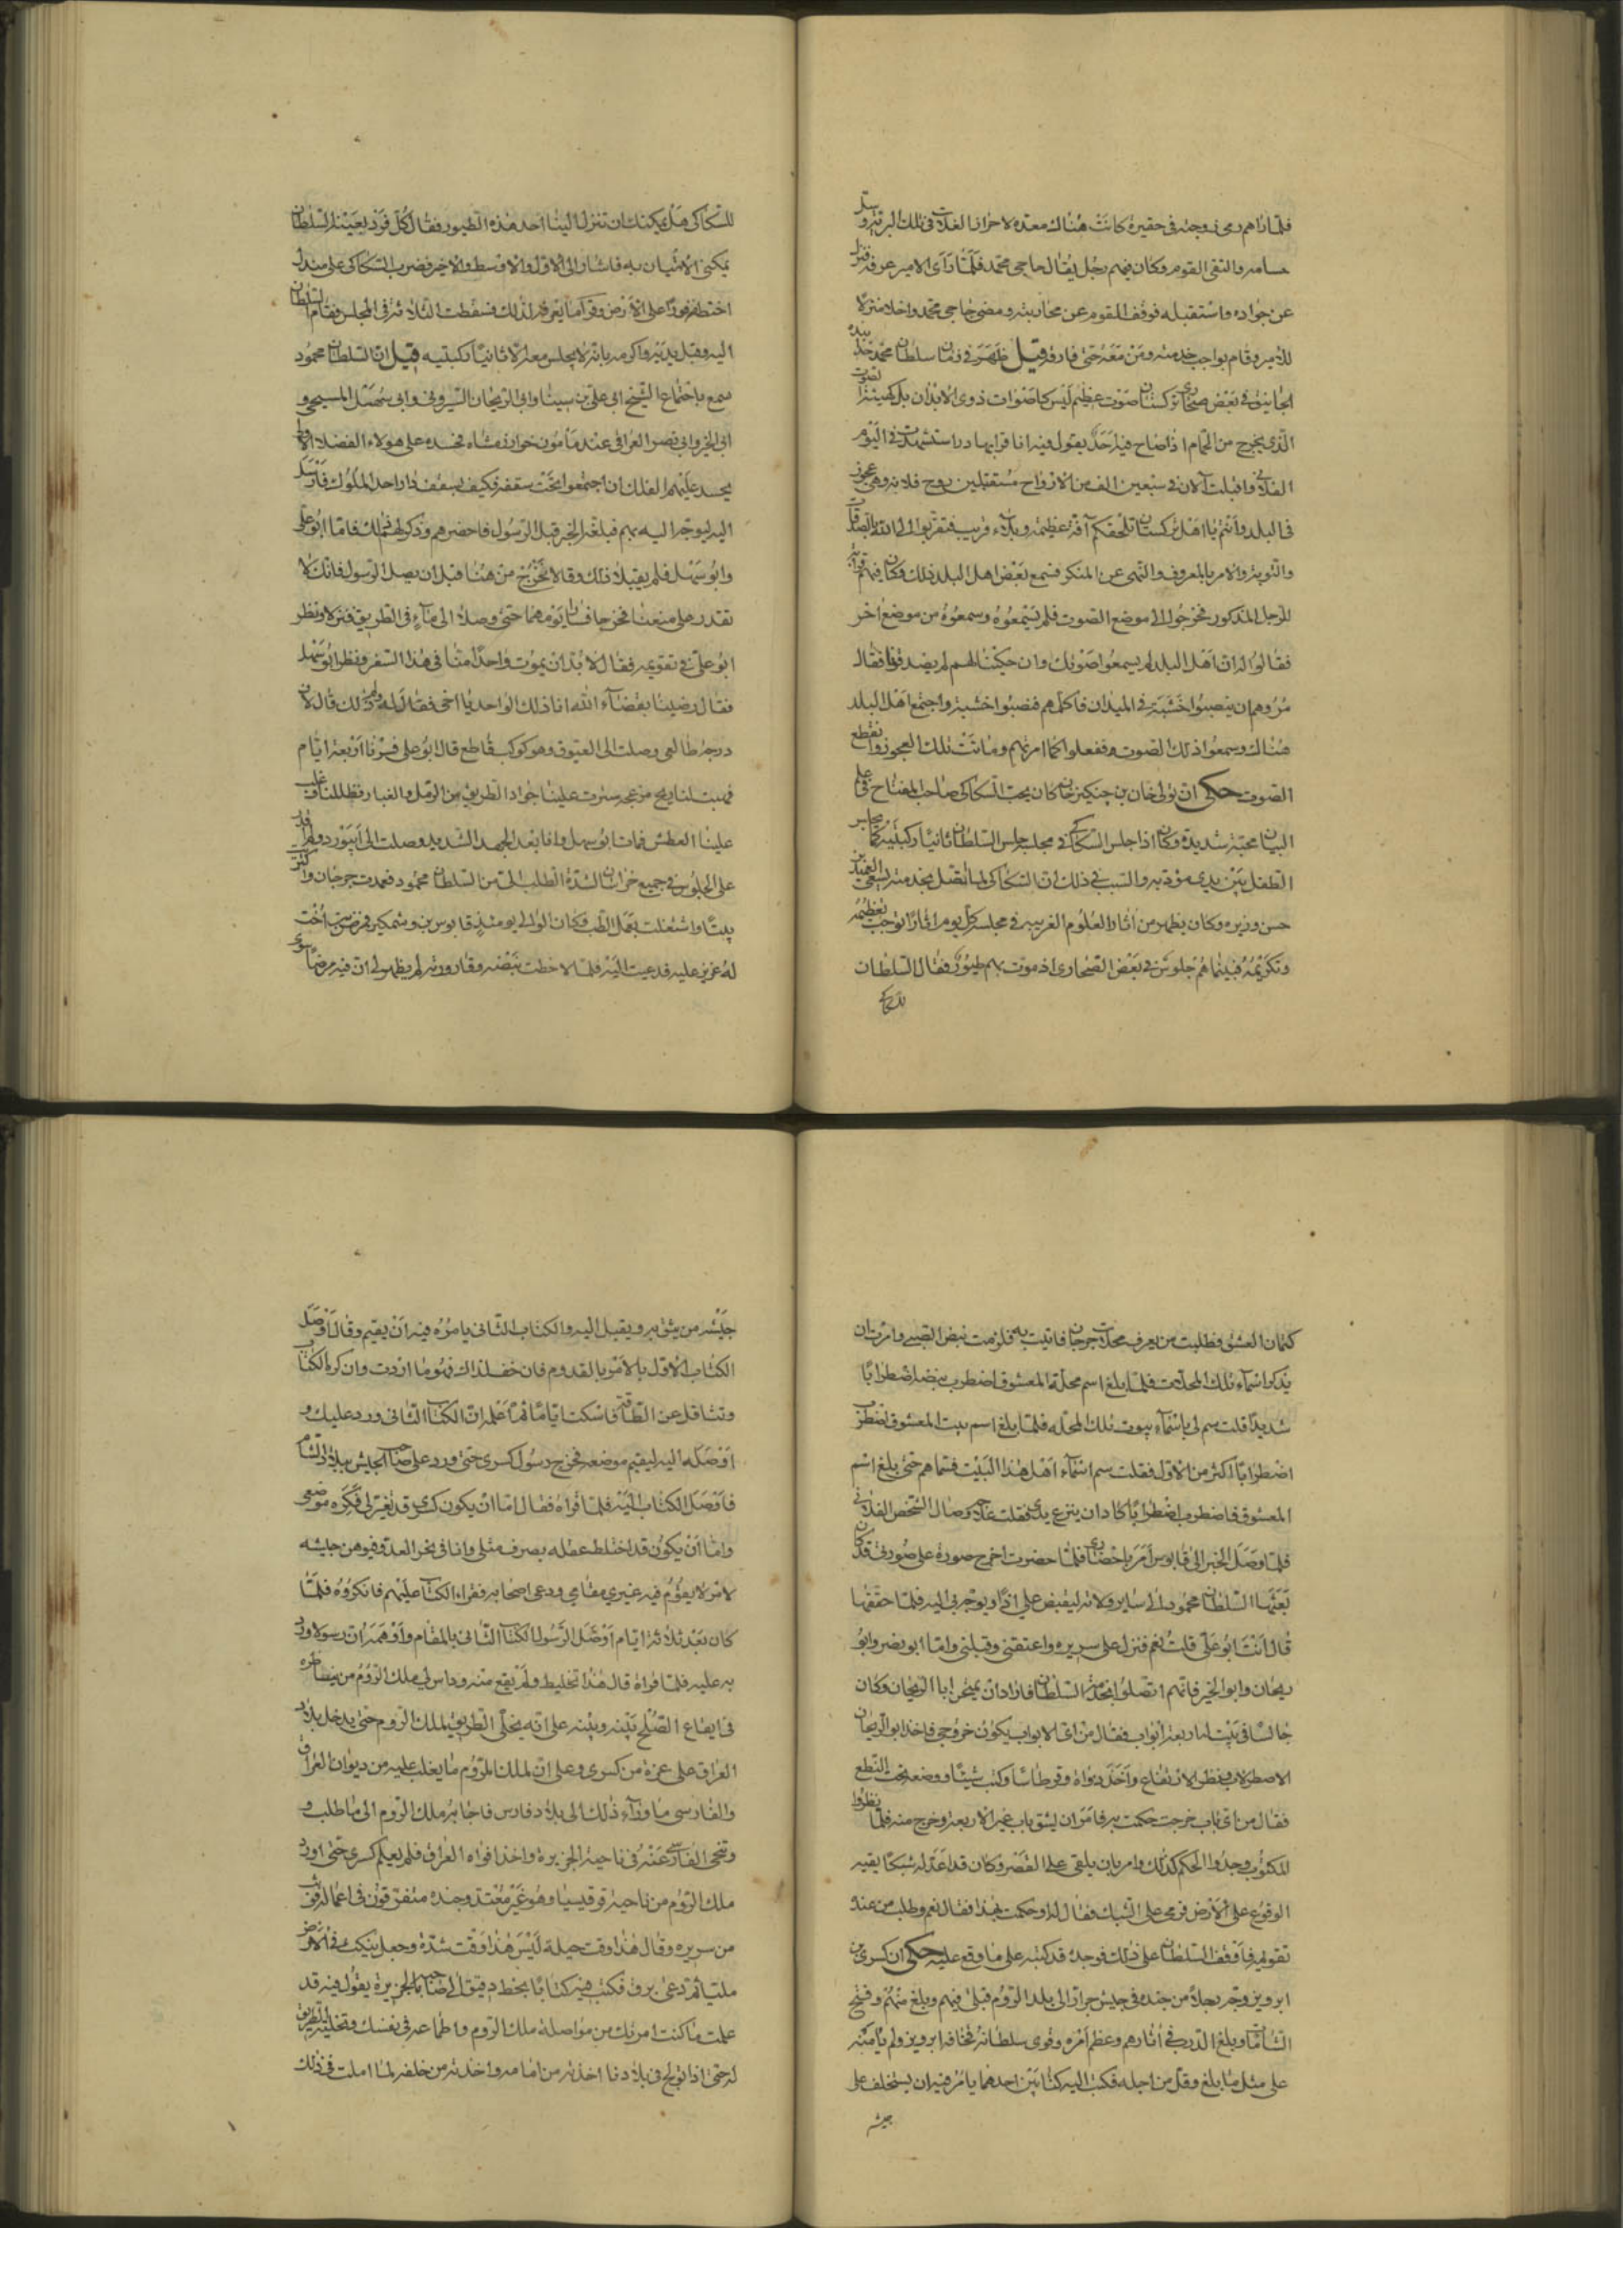 فلما راهم رمى زوجته فى حفيرة كانت هناك معدة لاحراز الغلات فى تلك البرية وسل
حسامه والتقى القوم وكان فيهم رجل يقال حاجى محمد فلما رآى الامير عرفه فنزل
عن جواده واستقبله فوقف القوم عن محاربته ومضى حاجى محمد واخلا منزلا
للامير وقام بواجب خدمته ومن معه حتى فارقه قيل ظهر فى زمان سلطان محمد خدابنده
فى بعض صحارى تركستان صوت عظيم ليس كاصوات ذوى الابدان بل كهيئة الصوت
الذى يخرج من الحمام اذا صاح فيه احد يقول فيه انا قرا بهادر استشهدت فى اليوم
الفلانى واقبلت الان فى سبعين الف من الارواح مستقبلين روح فلانه وهى عجوز
فى البلد وانتم يا اهل تركستان تلحقكم آفة عظيمة وبلاء قريب فتقربوا الى الله بالصدقات
والتوبة والامر بالمعروف والنهى عن المنكر فسمع بعض اهل البلد ذلك وكان فيهم قرابة
للرجل المذكور فخرجوا الى موضع الصوت فلم يسمعوه وسمعوه من موضع اخر
فقالوا له ان اهل البلد لم يسمعوا صوتك وان حكينا لهم لم يصدقونا فقال
مروهم ان ينصبوا خشبة فى الميدان فنصبوا خشبة واجتمع اهل البلد
هناك وسمعوا ذلك الصوت وفعلوا كما امرتهم وماتت تلك العجوز وانقطع
الصوت حكى ان تولى خان بن چنكيز خان كان يحب السكاكى صاحب المفتاح فى علم
البيان محبة شديدة وكان اذا جلس السكاكى فى مجلسه جلس السلطان ثانيا ركبتيه كما يجلس
الطفل بين يدى مؤدبه والسبب فى ذلك ان السكاكى لما اتصل بخدمته بسعى
حسن وزيره وكان يظهر من آثار العلوم الغريبه فى مجلسه كل يوم اثارا توجب تعظيمه
وتكريمه فبينما هم جلوس فى بعض الصحارى اذ مرت بهم طيور فقال السلطان
للسكاكى
للسكاكى هل يمكنك ان تنزل الينا احد هذه الطيور فقال كل فرد يعينه السلطان
يمكنى الاتيان به فاشار الى الاول والاوسط والاخر فضرب السكاكى على مندل
اختطه فورا على الارض وقرا ما يعرفه لذلك فسقطت الثلاثة فى المجلس فقام السلطان
اليه وقبل يديه واكرمه بانه لا يجلس معه الا ثانيا ركبتيه قيل ان السلطان محمود
سمع باجتماع الشيخ ابى على بن سينا وابى الريحان البيرونى وابى سهل المسيحى و
ابى الخير وابى نصر العراقى عند مأمون خوارزمشاه فحسده على هولاء الفضلاء
يحسد عليهم الفلك ان اجتمعوا تحت سقفه فكيف بسقف دار احد الملوك فارسل
اليه ليوجه اليه بهم فبلغه الخبر قبل الرسول فاحضرهم وذكر لهم ذلك فاما ابو على
وابو سهل فلم يقبلا ذلك وقالا نخرج من هنا قبل ان يصل الرسول فانك لا
تقدر على منعنا فخرجا فسارا يومهما حتى وصلا الى ماء فى الطريق فنزلا ونظر
ابو على فى تقويمه فقال لابد ان يموت واحدا منا فى هذا السفر ونظر ابو سهل
فقال رضينا بقضاء الله انا ذلك الواحد يا اخى فقال له ولم ذلك قال لان
درجة طالعى وصلت الى العيوق وهو كوكب قاطع قال ابو على فسرنا اربعة ايام
فهبت لنا ريح مزعجه سترت علينا جواد الطريق من الرمل والغبار فظللنا وغلب
علينا العطش فمات ابو سهل وانا بعد الجهد الشديد وصلت الى ابيورد ولم اقدر
على الجلوس فى جميع خراسان لشدة الطلب الى من السلطان محمود فعمدت جرجان واكتريت
بيتا واشتغلت بعمل الطب وكان الوالى يومئذ قابوس بن وشمكير فمرض ابن اخت
له عزيز عليه فدعيت اليه فلما لاحظت نبضه وقارورته لم يظهر لى ان فيه مرضا سوى
كتمان العشق فطلبت من يعرف محلات جرجان فاتيت به فلزمت نبض الصبى وامرت ان
يذكر اسماء تلك المحلات فلما بلغ اسم محلة المعشوق اضطرب نبضه اضطرابا
شديدا قلت سم لى باسماء بيوت تلك المحله فلما بلغ اسم بيت المعشوق اضطرب
اضطرابا اكثر من الاول فقلت سم اسماء اهل هذا البيت فسماهم حتى بلغ اسم
المعشوق فاضطرب اضطرابا كاد ان ينتزع يدى فقلت علاجه وصال الشخص الفلانى
فلما وصل الخبر الى قابوس امر باحضارى فلما حضرت اخرج صورة على صورتى قد كان
بعثها السلطان محمود الى ساير ولاته ليقبض على ويوجه بى اليه فلما حققها
قال انت ابو على قلت نعم فنزل على سريره واعتنقنى وقبلنى واما ابو نصر وابو
ريحان وابو الخير فانهم اتصلوا بخدمة السلطان فاراد ان يمتحن ابا الريحان وكان
جالسا فى بيت له اربعة ابواب فقال من اى الابواب يكون خروجى فاخذ ابو الريحان
الاصطرلاب ونظر الارتفاع واخذ دواة وقرطاسا وكتب شيئا ووضعه تحت النطع
فقال من اى باب خرجت حكمت به فامر ان يشق باب غير الاربعة وخرج منه فلما نظروا
المكتوب وجدوا الحكم كذلك وامر بان يلقى على القصر وكان قد اعد له شبكا يقيه
الوقوع على الارض فرمى على الشبك فقال له او حكمت بهذا فقال نعم وطلب من عنده
تقويمه فاوقف السلطان على ذلك فوجده قد كتبه على ما وقع عليه حكى ان كسرى بن
ابرويز وجه رجلا من جنده فى جيش جرار الى بلد الروم فبلى فيهم وبلغ منهم وفتح
الشامات وبلغ الدرب فى آثارهم وعظم امره وقوى سلطانه فخافه ابرويز ولم يأمنه
على مثل ما بلغ وقل من اجله فكتب اليه كتابين احدهما يأمره فيه ان يستخلف على
جيشه
جيشه من يثق به ويقبل اليه والكتاب الثانى يامره فيه ان يقيم وقال اوصل
الكتاب الاول بالامر بالقدوم فان خف لذلك فهو ما اردت وان كره الكتاب
وتثاقل عن الطاعة فاسكت اياما ثم اعلمه ان الكتاب الثانى ورد عليك و
اوصله اليه ليقيم موضعه فخرج رسول كسرى حتى ورد على صاحب الجيش ببلاد الشام
فاوصل الكتاب اليه فلما قراه فقال اما ان يكون كسرى قد تغير لى فكره موضعى
واما ان يكون قد اختلط عقله بصرف مثلى وانا فى نحر العدو
لامر لا يقوم فيه غيرى مقامى ودعى اصحابه فقراء الكتاب عليهم فانكروه فلما
كان بعد ثلاثة ايام اوصل الرسول الكتاب الثانى بالمقام واوهمه ان رسولا ورد
به عليه فلما قراه قال هذا تخليط ولم يقع منه وداس لى ملك الروم من يناظره
فى ايقاع الصلح بينه وبينه على انه يخلى الطريق لملك الروم حتى يدخل بلاد
العراق على غرة من كسرى وعلى ان لملك الروم ما يغلب عليه من ديوان العراق
والفارسى ما وراء ذلك الى بلاد فارس فاجابه ملك الروم الى ما طلب و
وتنحى الفارسى عنه فى ناحية الجزيرة واخذ افواه العراق فلم يعلم كسرى حتى اورد
ملك الروم من ناحية قرقيسيا وهو غير معتد وجنده متفرقون فى اعماله فوثب
من سريره وقال هذا وقت حيلة ليس هذا وقت شدة وجعل ينكت فى الارض
مليا ثم دعى برق فكتب فيه كتابا بخط دقيق الى صاحبه بالجزيرة يقول فيه قد
علمت ما كنت امرتك من مواصلة ملك الروم واطماعه فى نفسك وتخلية الطريق
له حتى اذا تولج فى بلادنا اخذته من امامه واخذته من خلفه لما املت فى ذلك